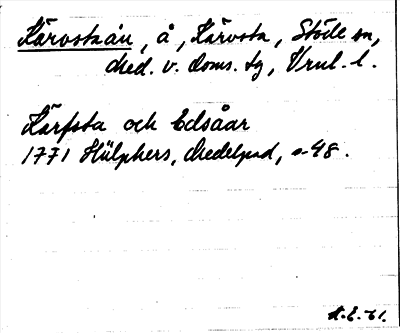 Kärvstaån, å, Kärvsta, Stöde sn,
Med. v. doms. tg, Vnrl. l.
Kärfsta och Edsåar
1771 Hülphers, Medelpad, s. 48.